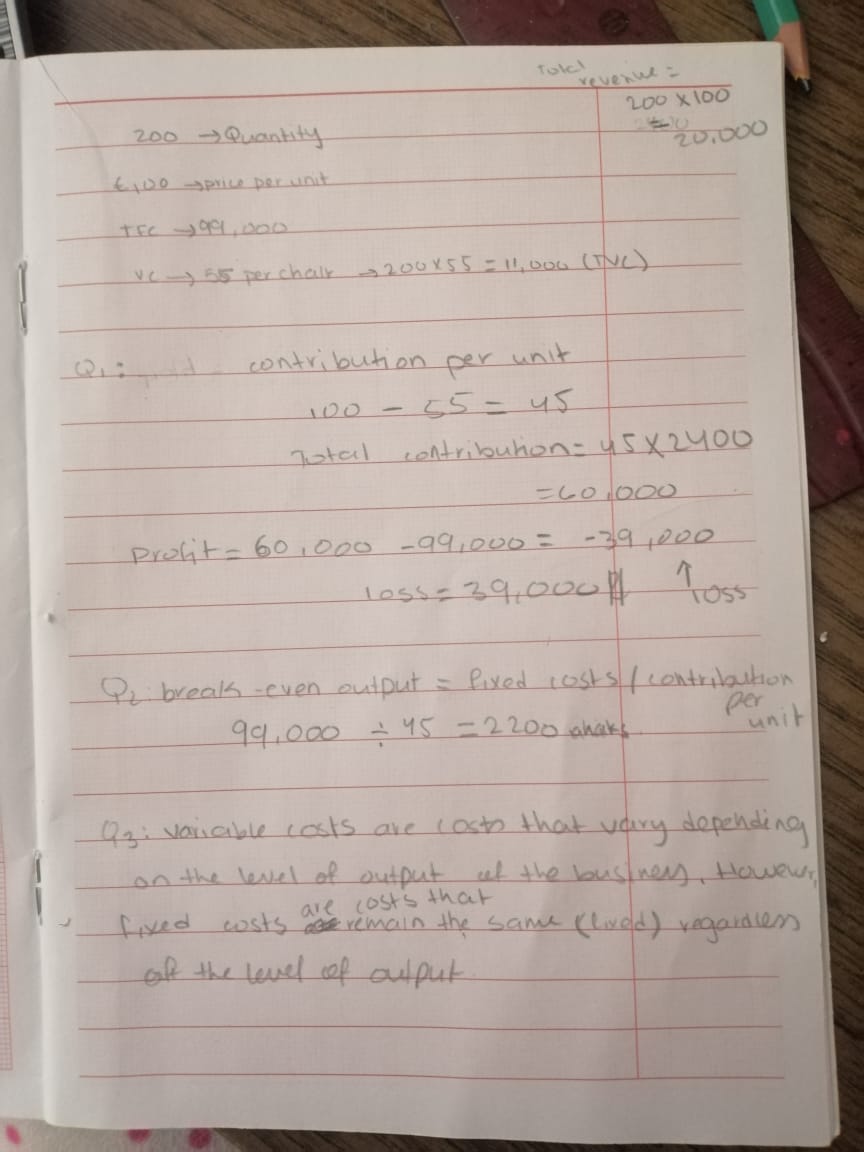 Total
revenue =
200 x 100
= 20,000
200 → Quantity
£100 → price per unit
TFC → 99,000
VC → 55 per chair → 200x55 = 11,000 (TVC)
Q1: contribution per unit
100 - 55 = 45
Total contribution = 45 x 2400
= 60,000
Profit = 60,000 - 99,000 = -39,000
↑
loss = 39,000 loss
Q2: break-even output = fixed costs / contribution
per
unit
99,000 ÷ 45 = 2200
Q3: variable costs are costs that vary depending
on the level of output of the business. However,
fixed costs are costs that remain the same (fixed) regardless
of the level of output.